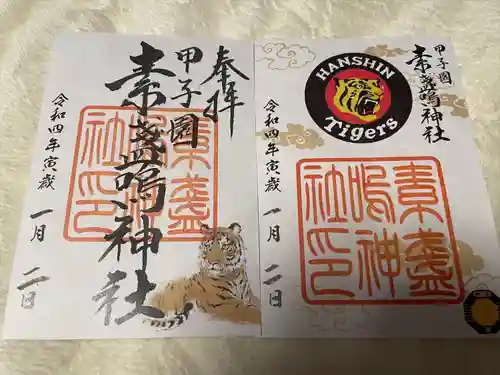 奉拝
甲子園
素盞嗚神社
素盞
嗚神
社印
令和四年寅歳
一月
二日
甲子園
素盞嗚神社
HANSHIN
Tigers
素盞
嗚神
社印
令和四年寅歳
一月
二日